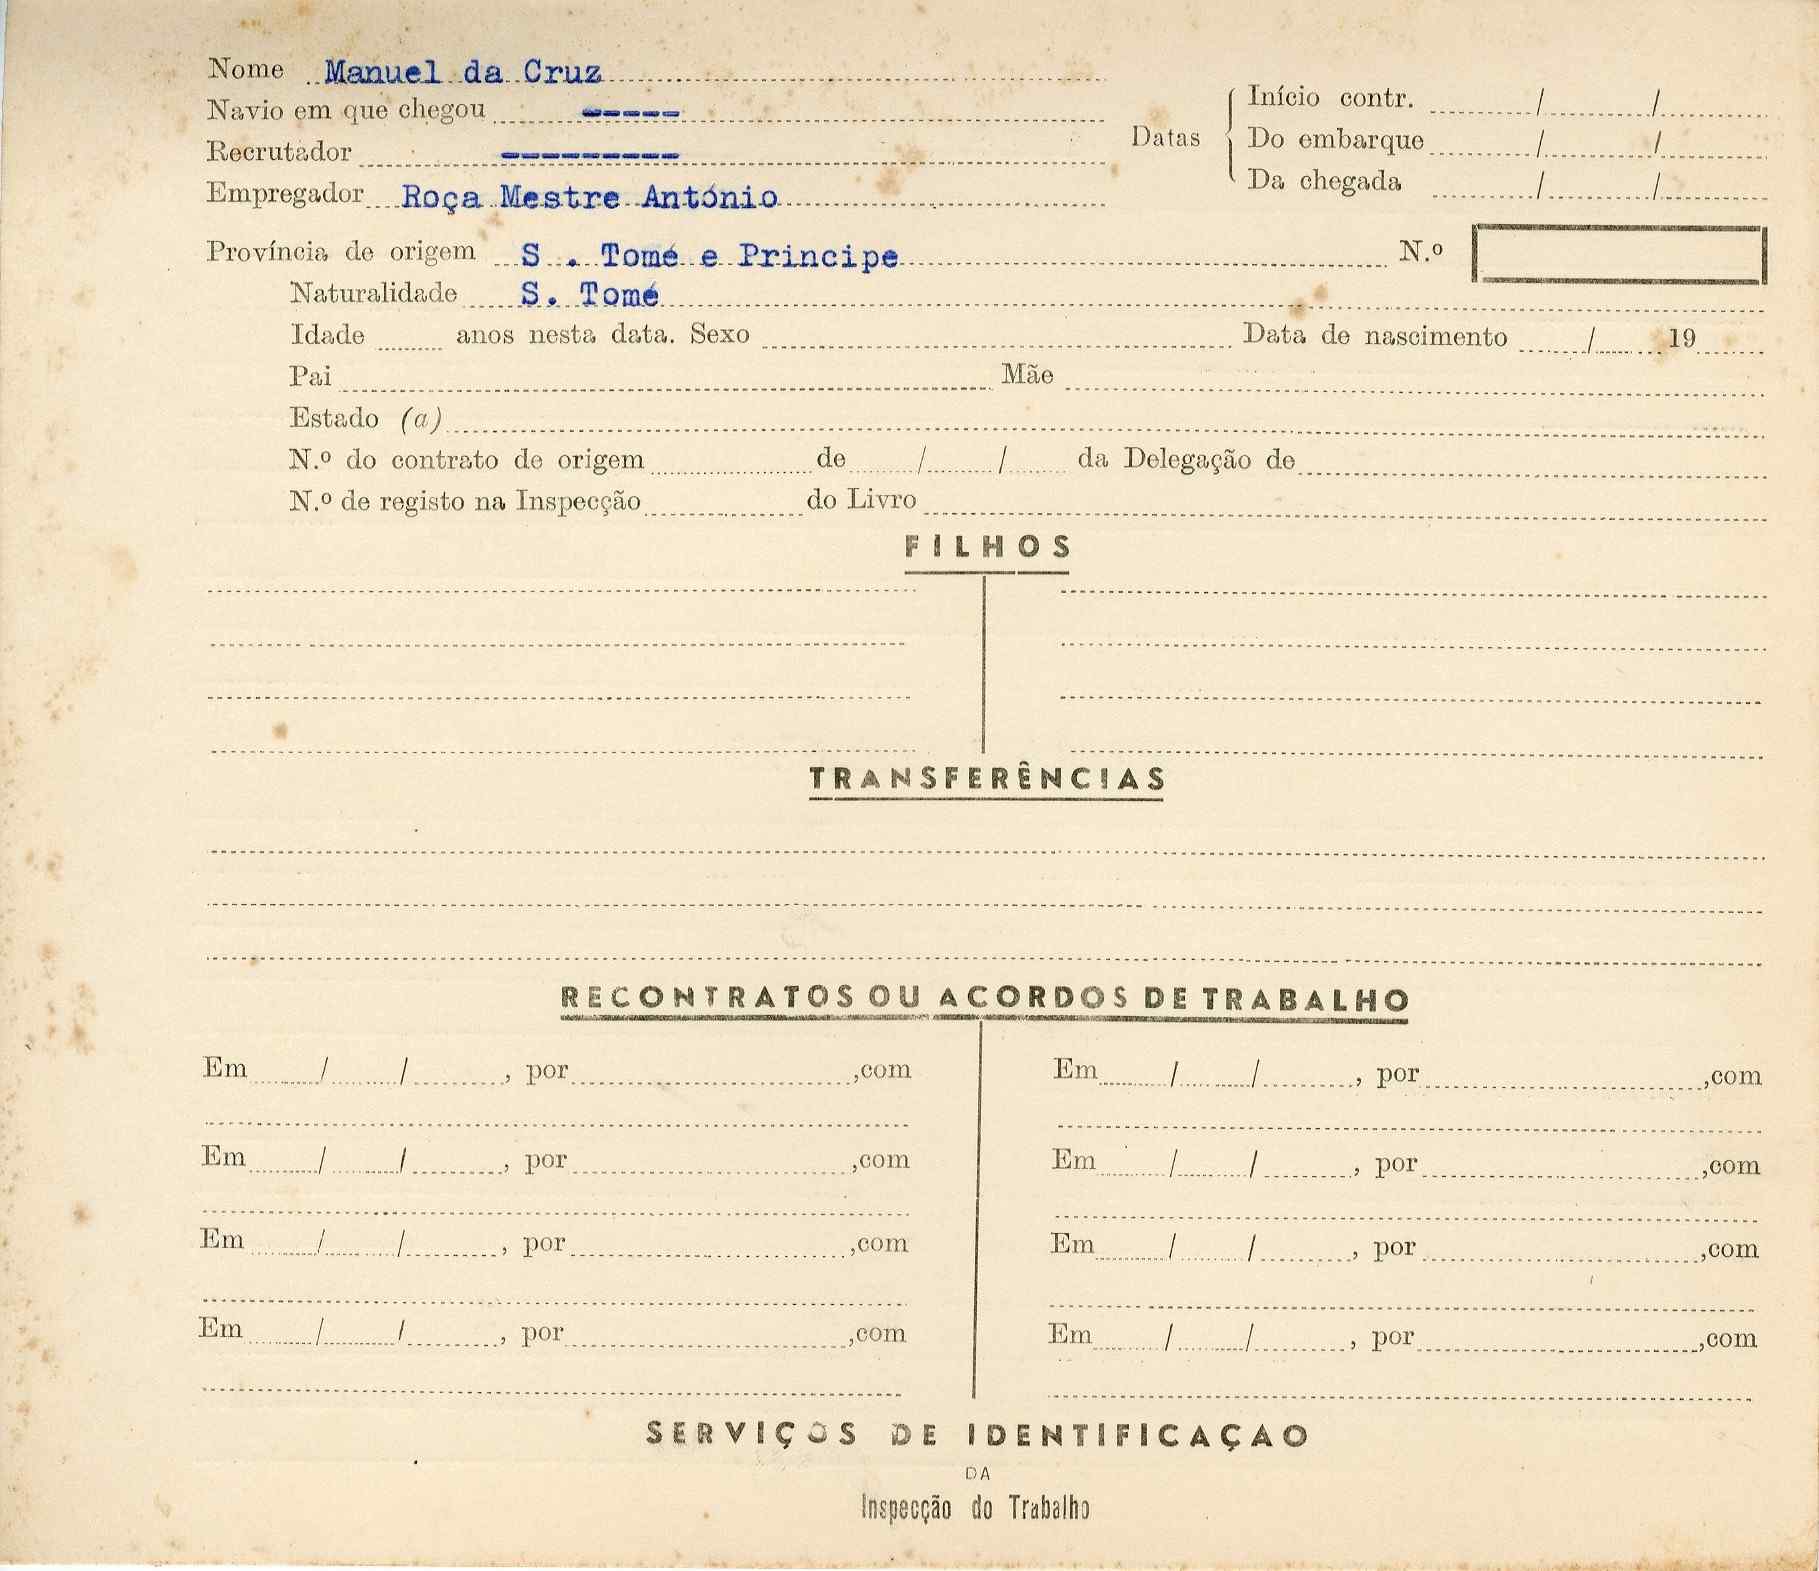 Nome Manuel da Cruz
Navio em que chegou -----
Recrutador ---------
Empregador Roça Mestre António
Datas
Início contr. / /
Do embarque / /
Da chegada / /
Província de origem S . Tomé e Principe N.º
Naturalidade S. Tomé
Idade anos nesta data. Sexo Data de nascimento / 19
Pai Mãe
Estado (a)
N.º do contrato de origem de / / da Delegação de
N.º de registo na Inspecção do Livro
FILHOS
TRANSFERÊNCIAS
RECONTRATOS OU ACORDOS DE TRABALHO
Em / / , por ,com Em / / , por ,com
Em / / , por ,com Em / / , por ,com
Em / / , por ,com Em / / , por ,com
Em / / , por ,com Em / / , por ,com
SERVIÇOS DE IDENTIFICAÇAO
DA
Inspecção do Trabalho